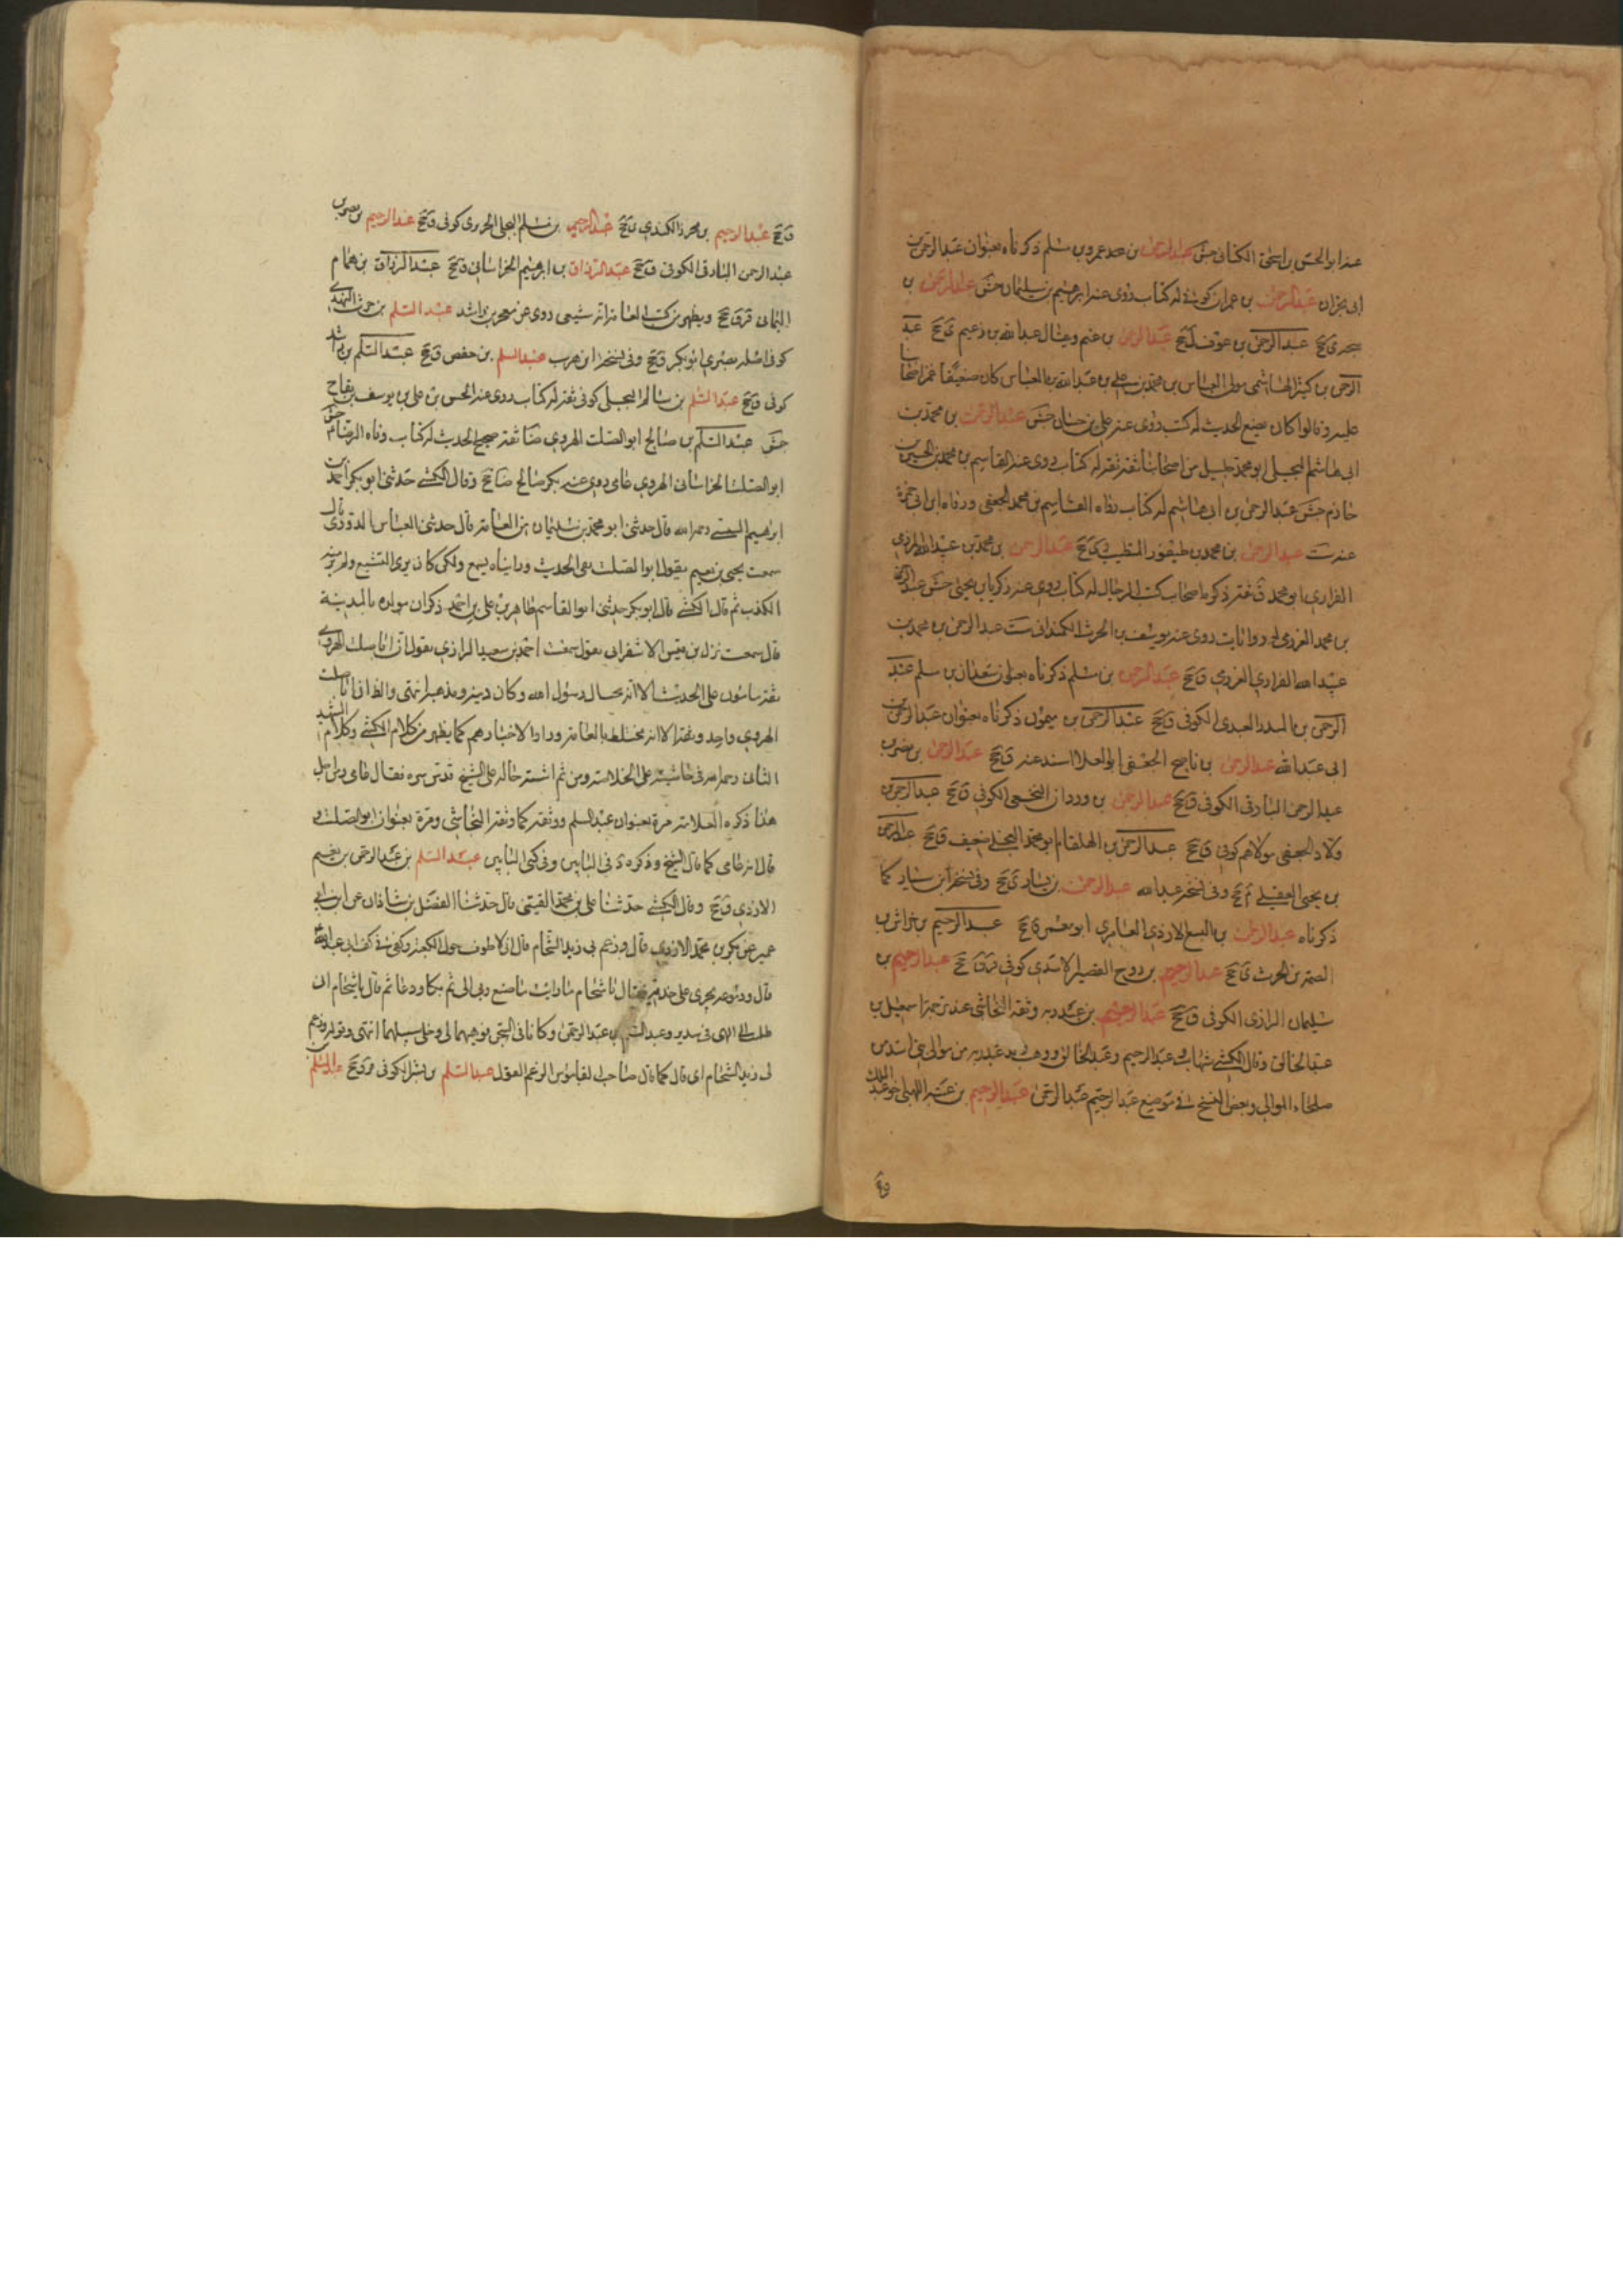 عنه ابو الحسن بن اسحق الكنانى جش عبدالرحمن بن عمرو بن مسلم ذكرناه بعنوان عبدالرحمن بن
ابى نجران عبدالرحمن بن عمران كوفى له كتاب روى عنه ابرهيم بن سليمان جش عبدالرحمن بن
ى جخ عبدالرحمن بن عوف ل جخ عبدالرحمن بن غنم ويقال عبدالله بن ى جخ عبد
الرحمن بن كثير الهاشمى مولى العباس بن محمد بن على بن عبدالله بن العباس كان ضعيفا غمز اصحابنا
عليه وقالوا كان يضع الحديث له كتب روى عنه على بن حسان جش عبدالرحمن بن محمد بن
ابى هاشم البجلى ابو محمد جليل من اصحابنا ثقة ثقة له كتاب روى عنه القاسم بن محمد بن الحسين بن
خازم جش عبدالرحمن بن ابى هاشم له كتاب رواه القاسم بن محمد الجعفى ورواه ابن ابى حمزة
عنه ست عبدالرحمن بن محمد بن طيفور المتطبب ى جخ عبدالرحمن بن محمد بن عبيدالله العرزمى
الفزارى ابو محمد ق ثقة ذكره اصحاب كتب الرجال له كتاب روى عنه زكريا بن يحيى جش عبدالرحمن
بن محمد العرزمى له روايات روى عنه يوسف بن الحرث الكمندانى ست عبدالرحمن بن محمد بن
عبيدالله الفزارى العرزمى ق جخ عبدالرحمن بن مسلم ذكرناه بعنوان سعدان بن مسلم عبد
الرحمن بن العبدى الكوفى ق جخ عبدالرحمن بن ميمون ذكرناه بعنوان عبدالرحمن بن
ابى عبدالله عبدالرحمن بن ناصح الجعفى ابو العلا اسند عنه ق جخ عبدالرحمن بن نصر بن
عبدالرحمن البارقى الكوفى ق جخ عبدالرحمن بن وردان النخعى الكوفى ق جخ عبدالرحمن بن
ولاد الجعفى مولاهم كوفى ق جخ عبدالرحمن بن الهلقام ابو محمد البجلى ضعيف ق جخ عبدالرحمن
بن يحيى العقيلى م جخ وفى نسخة عبدالله عبدالرحمن بن يسار ى جخ وفى نسخة ابن سيار كما
ذكرناه عبدالرحمن بن اليسع الازدى الغامرى ابو معمر ى جخ عبدالرحيم بن خراش بن
الصمة بن الحرث ى جخ عبدالرحيم بن روح القصير الاسدى كوفى قر ق جخ عبدالرحيم بن
سليمان الرازى الكوفى ق جخ عبدالرحيم بن عبدربه وثقه النجاشى عند ترجمة اسمعيل بن
عبدالخالق وقال الكشى شهاب وعبدالرحيم وعبدالخالق ووهب بنو عبدربه من موالى بنى اسد من
صلحاء الموالى وبعض النسخ فى موضع عبدالرحيم عبدالرحمن عبدالرحيم بن عتبه اللهبى اخو عبدالملك
ق جخ عبدالرحيم بن محرز الكندى ق جخ عبدالرحيم بن مسلم البجلى الجريرى كوفى ق جخ عبدالرحيم بن نصر بن
عبدالرحمن البارقى الكوفى ق جخ عبدالرزاق بن ابرهيم الخراسانى ق جخ عبدالرزاق بن همام
اليمانى قر ق جخ ويظهر من كتب العامة انه شيعى روى عن معمر بن راشد عبدالسلم بن حرث النهدى
كوفى اصله بصرى ابو بكر ق جخ وفى نسخة ابن حرب عبدالسلم بن حفص ق جخ عبدالسلم بن راشد
كوفى ق جخ عبدالسلم بن سالم البجلى كوفى ثقة له كتاب روى عنه الحسن بن على بن يوسف بن بقاح
جش عبدالسلم بن صالح ابو الصلت الهروى ضا ثقة صحيح الحديث له كتاب وفاه الرضا م جش
ابو الصلت الخراسانى الهروى عامى روى عنه بكر بن صالح ضا جخ وقال الكشى حدثنى ابو بكر احمد بن
ابرهيم السنسنى رحمه الله قال حدثنى ابو محمد بن سليمان من العامة قال حدثنى العباس الدورى قال
سمعت يحيى بن نعيم يقول ابو الصلت نقى الحديث ورايناه يسمع ولكن كان يرى التشيع ولم ير منه
الكذب ثم قال الكشى قال ابو بكر حدثنى ابو القاسم طاهر بن على بن احمد ذكر ان مولده بالمدينة
قال سمعت نزل بن قيس الاسفرانى يقول سمعت احمد بن سعيد الرازى يقول ان ابا الصلت الهروى
ثقة مامون على الحديث الا انه يحب ال رسول الله وكان دينه ومذهبه انتهى والظ ان ابا الصلت
الهروى واحد وثقة الا انه مختلط بالعامة وراو لاخبارهم كما يظهر من كلام الكشى وكلام الشهيد
الثانى رحمه الله فى حاشيته على الخلاصة ومن ثم اشتبه حاله على الشيخ قدس سره فقال عامى ومن اجل
هذا ذكره العلامة مرة بعنوان عبدالسلم ووثقه كما وثقه النجاشى ومرة بعنوان ابو الصلت و
قال انه عامى كما قال الشيخ وذكره د فى البابين وفى كنى البابين عبدالسلم بن عبدالرحمن بن نعيم
الازدى ق جخ وقال الكشى حدثنا على بن محمد القتيبى قال حدثنا الفضل بن شاذان عن ابن ابى
عمير عن بكر بن محمد الازدى قال وزعم لى زيد الشحام قال انى لاطوف حول الكعبة وكفى فى كف ابى عبدالله
قال ودموعه يجرى على خديه فقال يا شحام ما رايت ما صنع ربى الى ثم بكا ودعا ثم قال يا شحام انى
طلبت الى الهى فى سدير وعبدالسلم بن عبدالرحمن وكانا فى السجن فوهبهما لى وخلى سبيلهما انتهى وقوله وزعم
لى زيد الشحام اى قال كما قال صاحب القاموس الزعم القول عبدالسلم بن بشير الكوفى ق جخ عبدالسلم